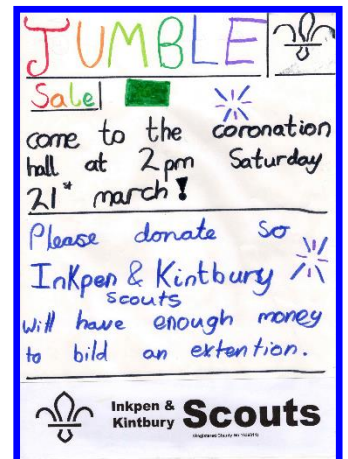 JUMBLE
Sale
come to the coronation
hall at 2pm Saturday
21st march!
Please donate so
Inkpen & Kintbury
scouts
will have enough money
to bild an extention.
Inkpen &
Kintbury Scouts